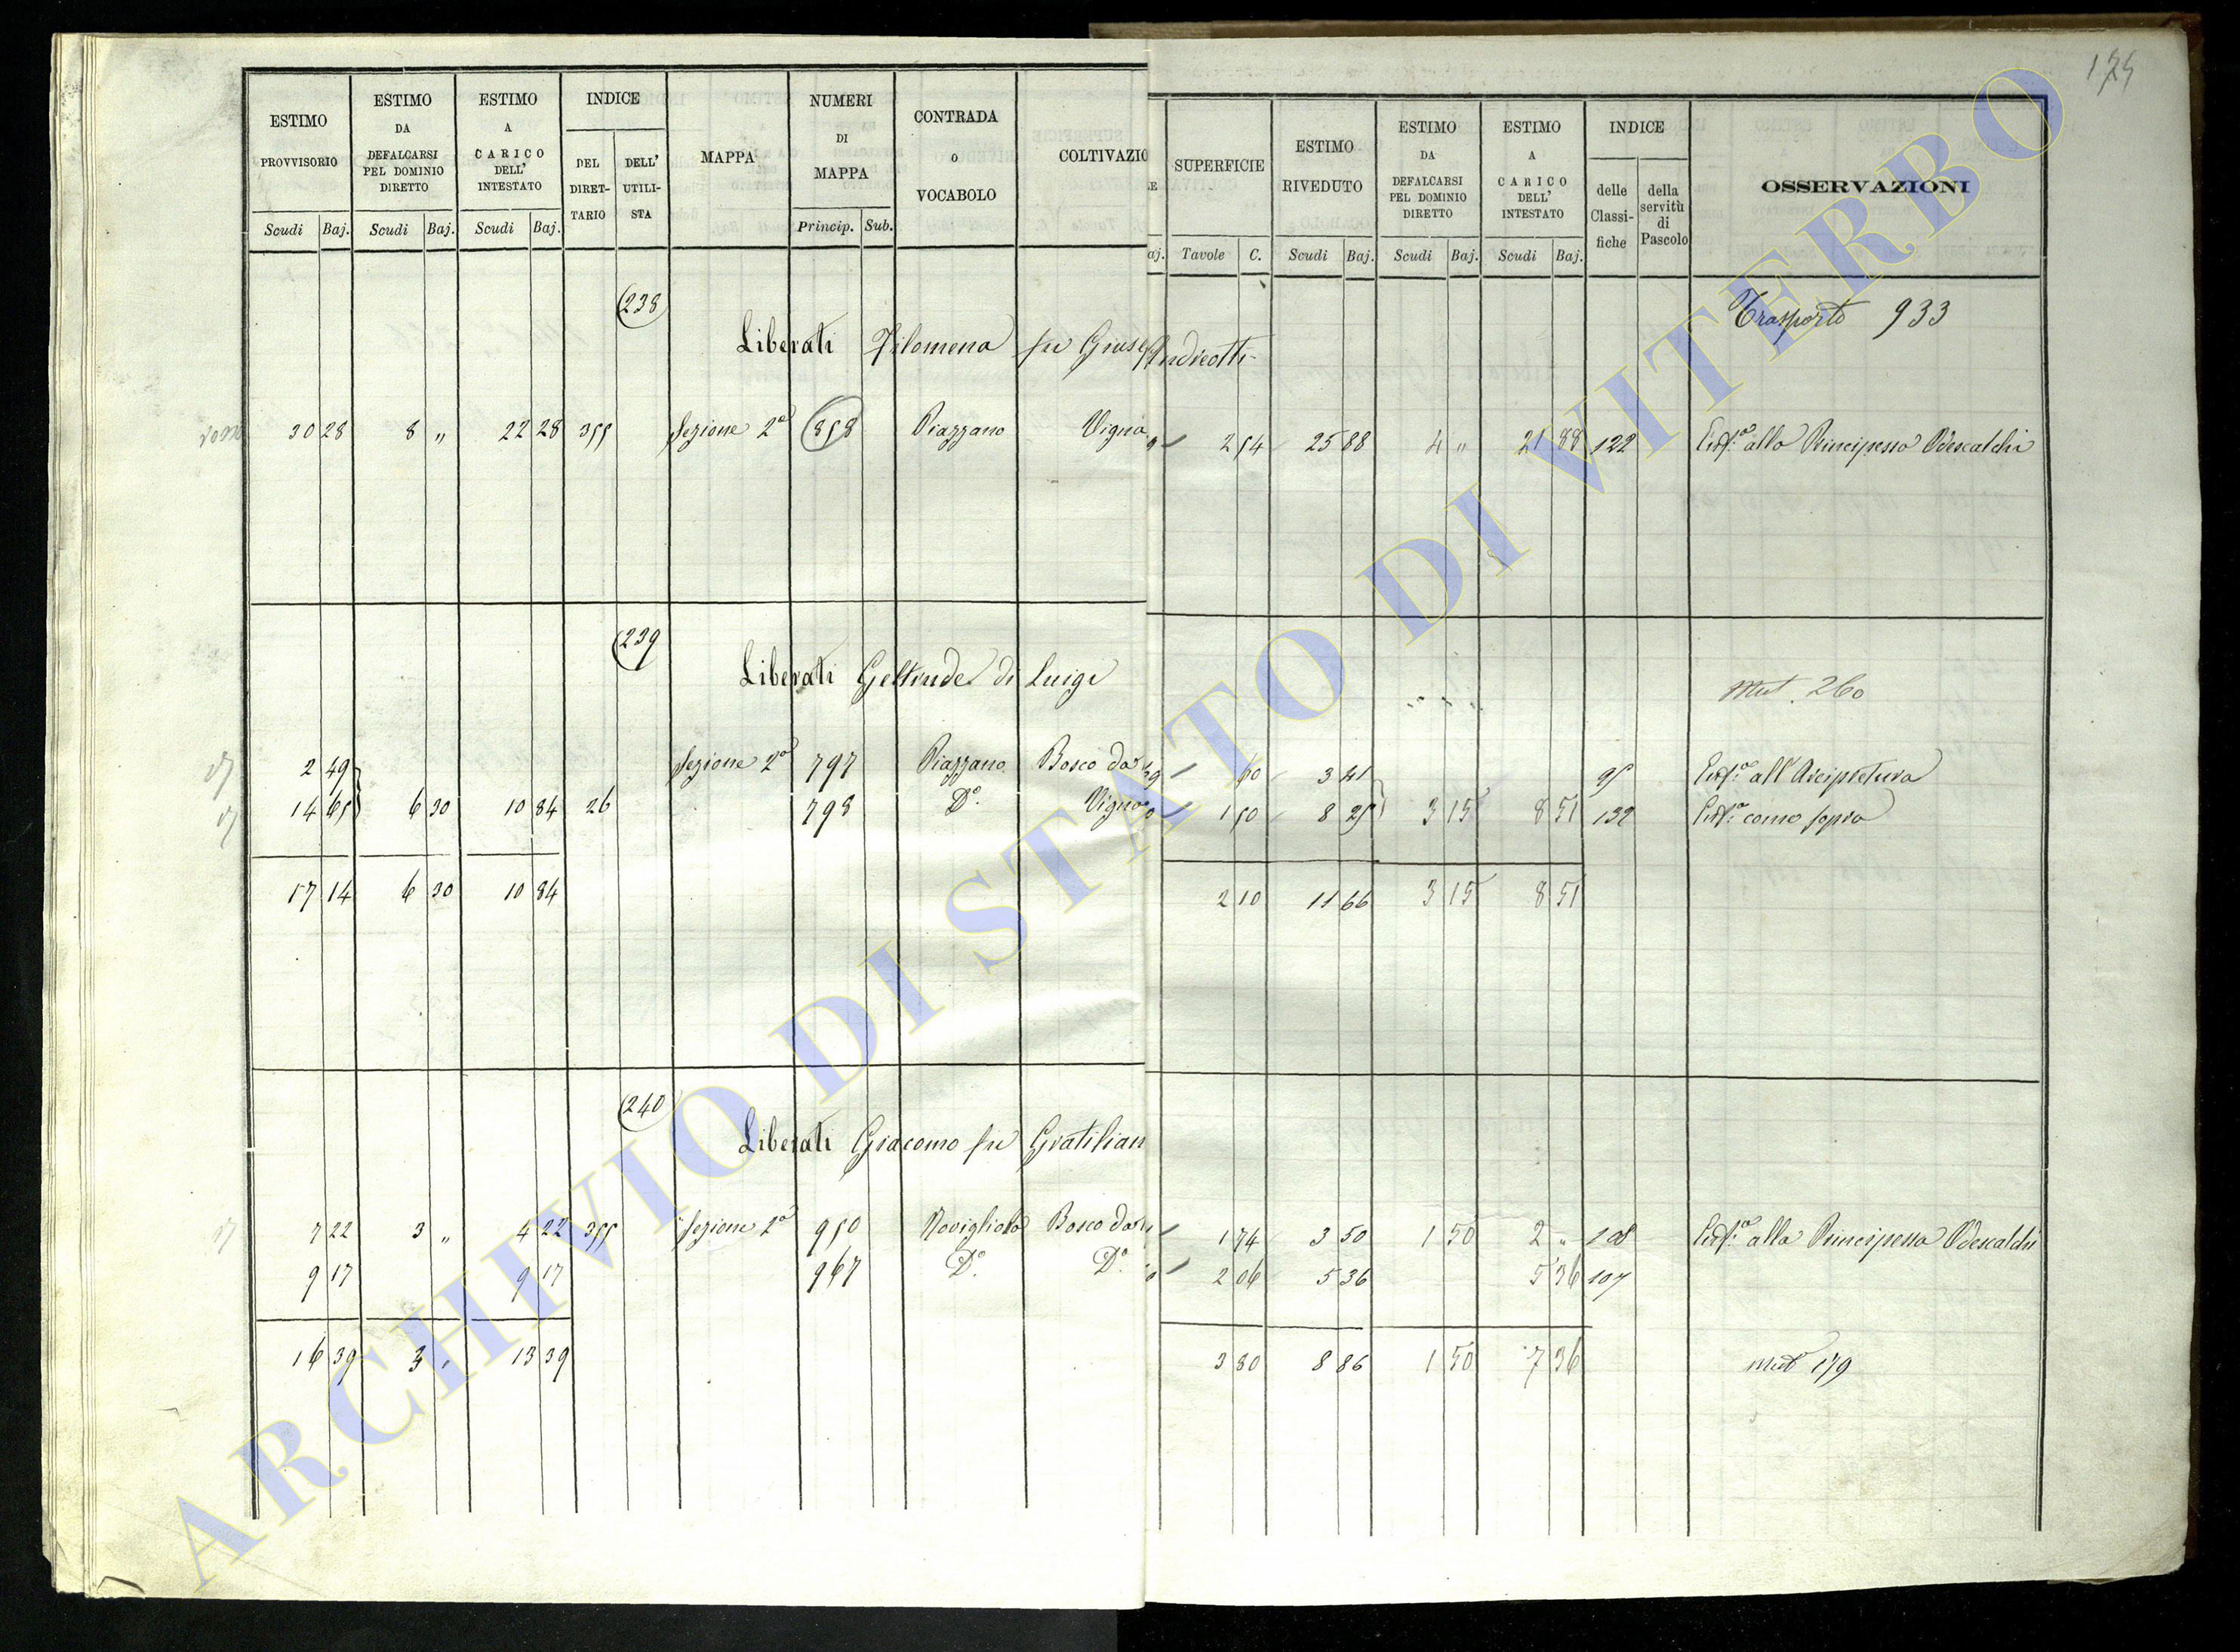 175
ESTIMO PROVVISORIO
ESTIMO DA DEFALCARSI PEL DOMINIO DIRETTO
ESTIMO A CARICO DELL' INTESTATO
INDICE
DEL DIRET-TARIO
DELL' UTILI-STA
MAPPA
NUMERI DI MAPPA
CONTRADA o VOCABOLO
COLTIVAZIO
SUPERFICIE
ESTIMO RIVEDUTO
ESTIMO DA DEFALCARSI PEL DOMINIO DIRETTO
ESTIMO A CARICO DELL' INTESTATO
INDICE
delle Classi-fiche
della servitù di Pascolo
OSSERVAZIONI
Scudi Baj. Scudi Baj. Scudi Baj. Princip. Sub. aj. Tavole C. Scudi Baj. Scudi Baj. Scudi Baj.
238
Trasporto 933
Liberati Filomena fu Gius Andreotti
30 28 8 " 22 28 355 Sezione 2ª 858 Piazzano Vigna 2 54 25 88 4 " 21 88 122 Enf.ª alla Principessa Odescalchi
239
Liberati Geltrude di Luigi
Mut. 260
2 49 Sezione 2ª 797 Piazzano Bosco da 60 3 41 95 Enf.ª all'Arcipretura
14 65 6 30 10 84 26 798 D.º Vigna 1 50 8 25 3 15 8 51 132 Enf.ª come sopra
17 14 6 30 10 84 2 10 11 66 3 15 8 51
240
Liberati Giacomo fu Gratilian
7 22 3 " 4 22 355 Sezione 2ª 950 Rovigliolo Bosco da 1 74 3 50 1 50 2 " 108 Enf.ª alla Principessa Odescalchi
9 17 9 17 967 D.º D.º 2 06 5 36 5 36 107
16 39 3 " 13 39 3 80 8 86 1 50 7 36 mut 179
ARCHIVIO DI STATO DI VITERBO